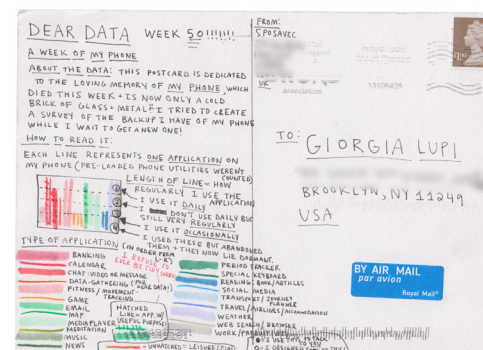 DEAR DATA WEEK 50!!!!!!
A WEEK OF MY PHONE
ABOUT THE DATA: THIS POSTCARD IS DEDICATED
TO THE LOVING MEMORY OF MY PHONE, WHICH
DIED THIS WEEK + IS NOW ONLY A COLD
BRICK OF GLASS + METAL. I TRIED TO CREATE
A SURVEY OF THE BACKUP I HAVE OF MY PHONE
WHILE I WAIT TO GET A NEW ONE!
HOW TO READ IT:
EACH LINE REPRESENTS ONE APPLICATION ON
MY PHONE (PRE-LOADED PHONE UTILITIES WEREN'T
COUNTED)
LENGTH OF LINE = HOW
REGULARLY I USE THE
APPLICATION
I USE IT DAILY
I DON'T USE DAILY BUT
STILL VERY REGULARLY
I USE IT OCCASIONALLY
I USED THESE BUT ABANDONED
THEM + THEY NOW LIE DORMANT.
TYPE OF APPLICATION (IN ORDER FROM
L-R)
BANKING
CALENDAR
CHAT/VIDEO/MESSAGE
DATA-GATHERING (FOR
DEAR DATA!)
FITNESS/MOVEMENT-
TRACKING
GAME
EMAIL
MAP
MEDIA PLAYER
MEDITATION
MUSIC
NEWS
I REFUSE TO
HATCHED
LINE = APP W/
USEFUL PURPOSE
= UNHATCHED = LEISURE/
PERIOD TRACKER
SPECIAL KEYBOARD
READING: BOOK/ARTICLES
SOCIAL MEDIA
TRANSPORT/JOURNEY
PLANNER
TRAVEL/AIRLINES/ACCOMMODATION
WEATHER
WEB SEARCH/BROWSER
WORK/
= I USE THIS TO TALK
TO YOU
FROM:
S POSAVEC
UK
association
13106425
TO: GIORGIA LUPI
BROOKLYN, NY 11249
USA
BY AIR MAIL
par avion
Royal Mail